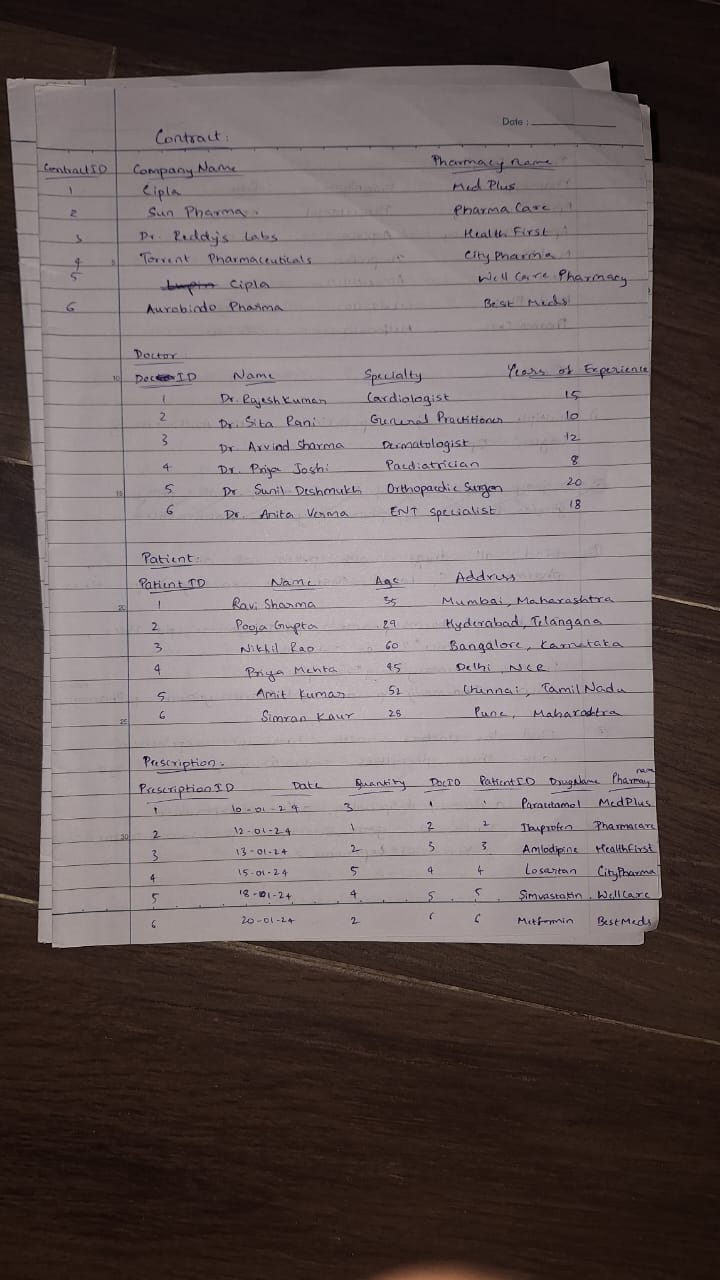 Date :
Contract :
ContractID Company Name Pharmacy name
1 Cipla Med Plus
2 Sun Pharma. Pharma Care
3 Dr. Reddy's Labs Health First
4 Torrent Pharmaceuticals City Pharma
5 Cipla Well Care Pharmacy
6 Aurobindo Pharma Best Meds
Doctor
10 Doc ID Name Specialty Years of Experience
1 Dr. Rajesh Kumar Cardiologist 15
2 Dr. Sita Rani General Practitioner 10
3 Dr Arvind Sharma Dermatologist 12
4 Dr. Priya Joshi Paediatrician 8
5 Dr Sunil Deshmukh Orthopaedic Surgon 20
6 Dr. Anita Verma ENT Specialist 18
Patient:
Patient ID Name Age Address
20 1 Ravi Sharma 35 Mumbai, Maharashtra
2 Pooja Gupta 29 Hyderabad, Telangana
3 Nikhil Rao 60 Bangalore, Karnataka
4 Priya Mehta 45 Delhi, NCR
5 Amit Kumar 52 Chennai, Tamil Nadu
25 6 Simran Kaur 28 Pune, Maharashtra
Prescription.
Prescription ID Date Quantity DocID PatientID DrugName Pharmacy name
1 10-01-24 3 1 1 Paracetamol MedPlus
30 2 12-01-24 1 2 2 Ibuprofen Pharmacare
3 13-01-24 2 3 3 Amlodipine HealthFirst
4 15-01-24 5 4 4 Losartan CityPharma
5 18-01-24 4 5 5 Simvastatin WellCare
6 20-01-24 2 6 6 Metformin BestMeds